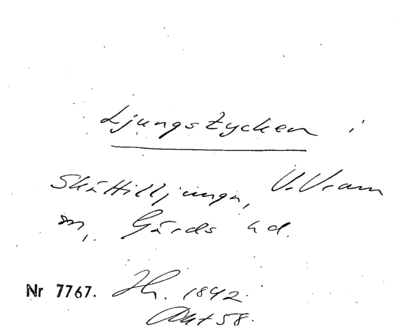 Ljungstycken i
Skättilljunga, V. Vram
sn, Gärds hd.
Nr 7767. Jh. 1842
Akt 58.